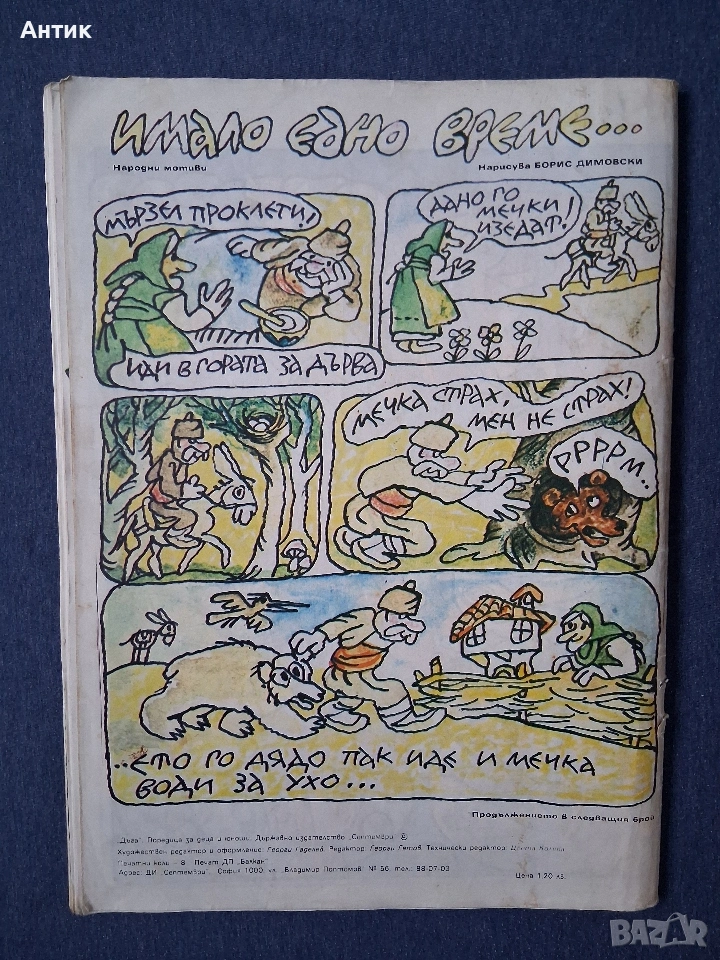 Антик
ИМАЛО ЕДНО ВРЕМЕ...
Народни мотиви
Нарисува БОРИС ДИМОВСКИ
МЪРЗЕЛ ПРОКЛЕТИ!
ИДИ В ГОРАТА ЗА ДЪРВА
ДАНО ГО
МЕЧКИ
ИЗЕДАТ!
МЕЧКА СТРАХ,
МЕН НЕ СТРАХ!
РРРРМ..
..ЕТО ГО ДЯДО ПАК ИДЕ И МЕЧКА
ВОДИ ЗА УХО...
Продължението в следващия брой
„Дъга". Поредица за деца и юноши. Държавно издателство „Септември" ©
Художествен редактор и оформление: Георги Гаделев. Редактор: Георги Петов. Технически редактор:
Печатни коли – 8. Печат ДП „Балкан"
Адрес: ДИ „Септември" София 1000 ул. „Владимир Поптомов" № 56 тел.: 88-07-03
Цена 1,20 лв.
BAZAR